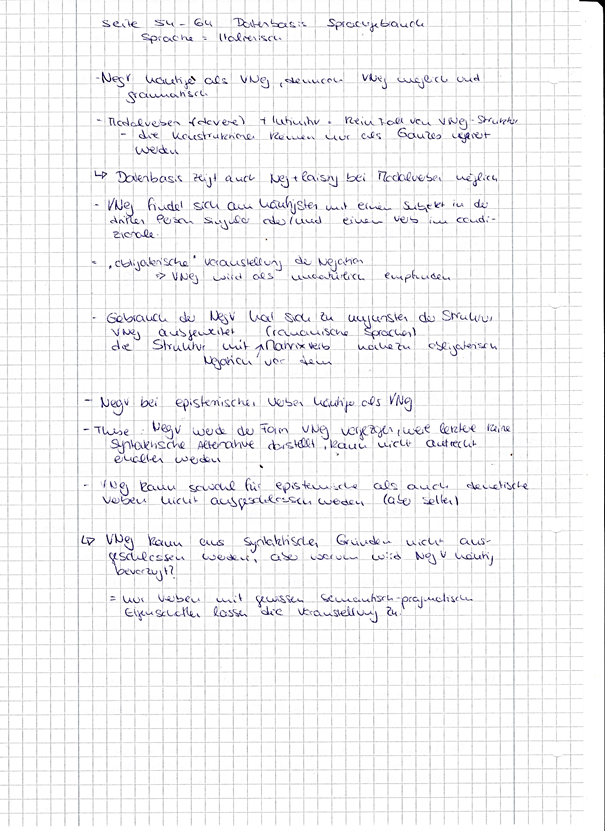 Seite 54 - 64 Datenbasis Sprachgebrauch
Sprache = Italienisch
- NegV häufiger als VNeg, dennoch VNeg möglich und
grammatisch
- Modalverben (dovere) + Infinitiv = kein Fall von VNeg-Struktur
- die Konstruktionen können nur als Ganzes negiert
werden
↳ Datenbasis zeigt auch Neg + bei Modalverben möglich
- VNeg findet sich am häufigsten mit einem Subjekt in der
dritten Person Singular oder/und einem Verb im condi-
zionale.
= "obligatorische" Voranstellung der Negation
⇒ VNeg wird als unnatürlich empfunden
- Gebrauch der NegV hat sich zu ungunsten der Struktur
VNeg ausgeweitet (romanische Sprachen)
die Struktur mit ∧ Matrixverb nahezu obligatorisch
Negation vor dem
- NegV bei epistemischen Verben häufiger als VNeg
- These: NegV werde der Form VNeg vorgezogen, weil letztere keine
syntaktische Alternative darstellt, kann nicht aufrecht
erhalten werden
- VNeg kann sowohl für epistemische als auch deontische
Verben nicht ausgeschlossen werden (aber selten)
↳ VNeg kann aus syntaktischen Gründen nicht aus-
geschlossen werden, aber warum wird NegV häufig
bevorzugt?
= nur Verben mit gewissen semantisch-pragmatischen
Eigenschaften lassen die Voranstellung zu.